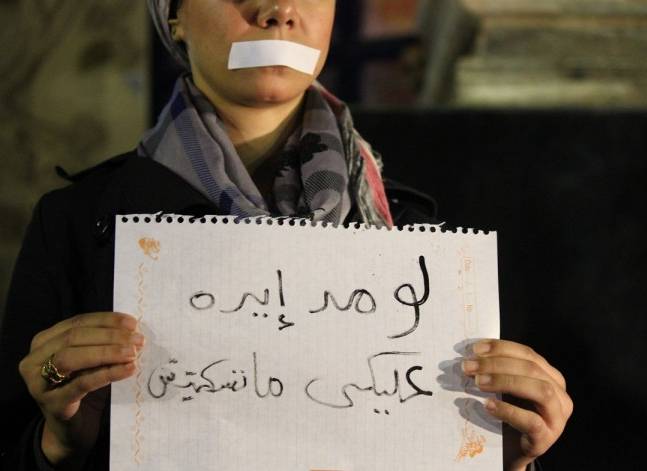 لو مد إيده
عليكى ماتسكتيش